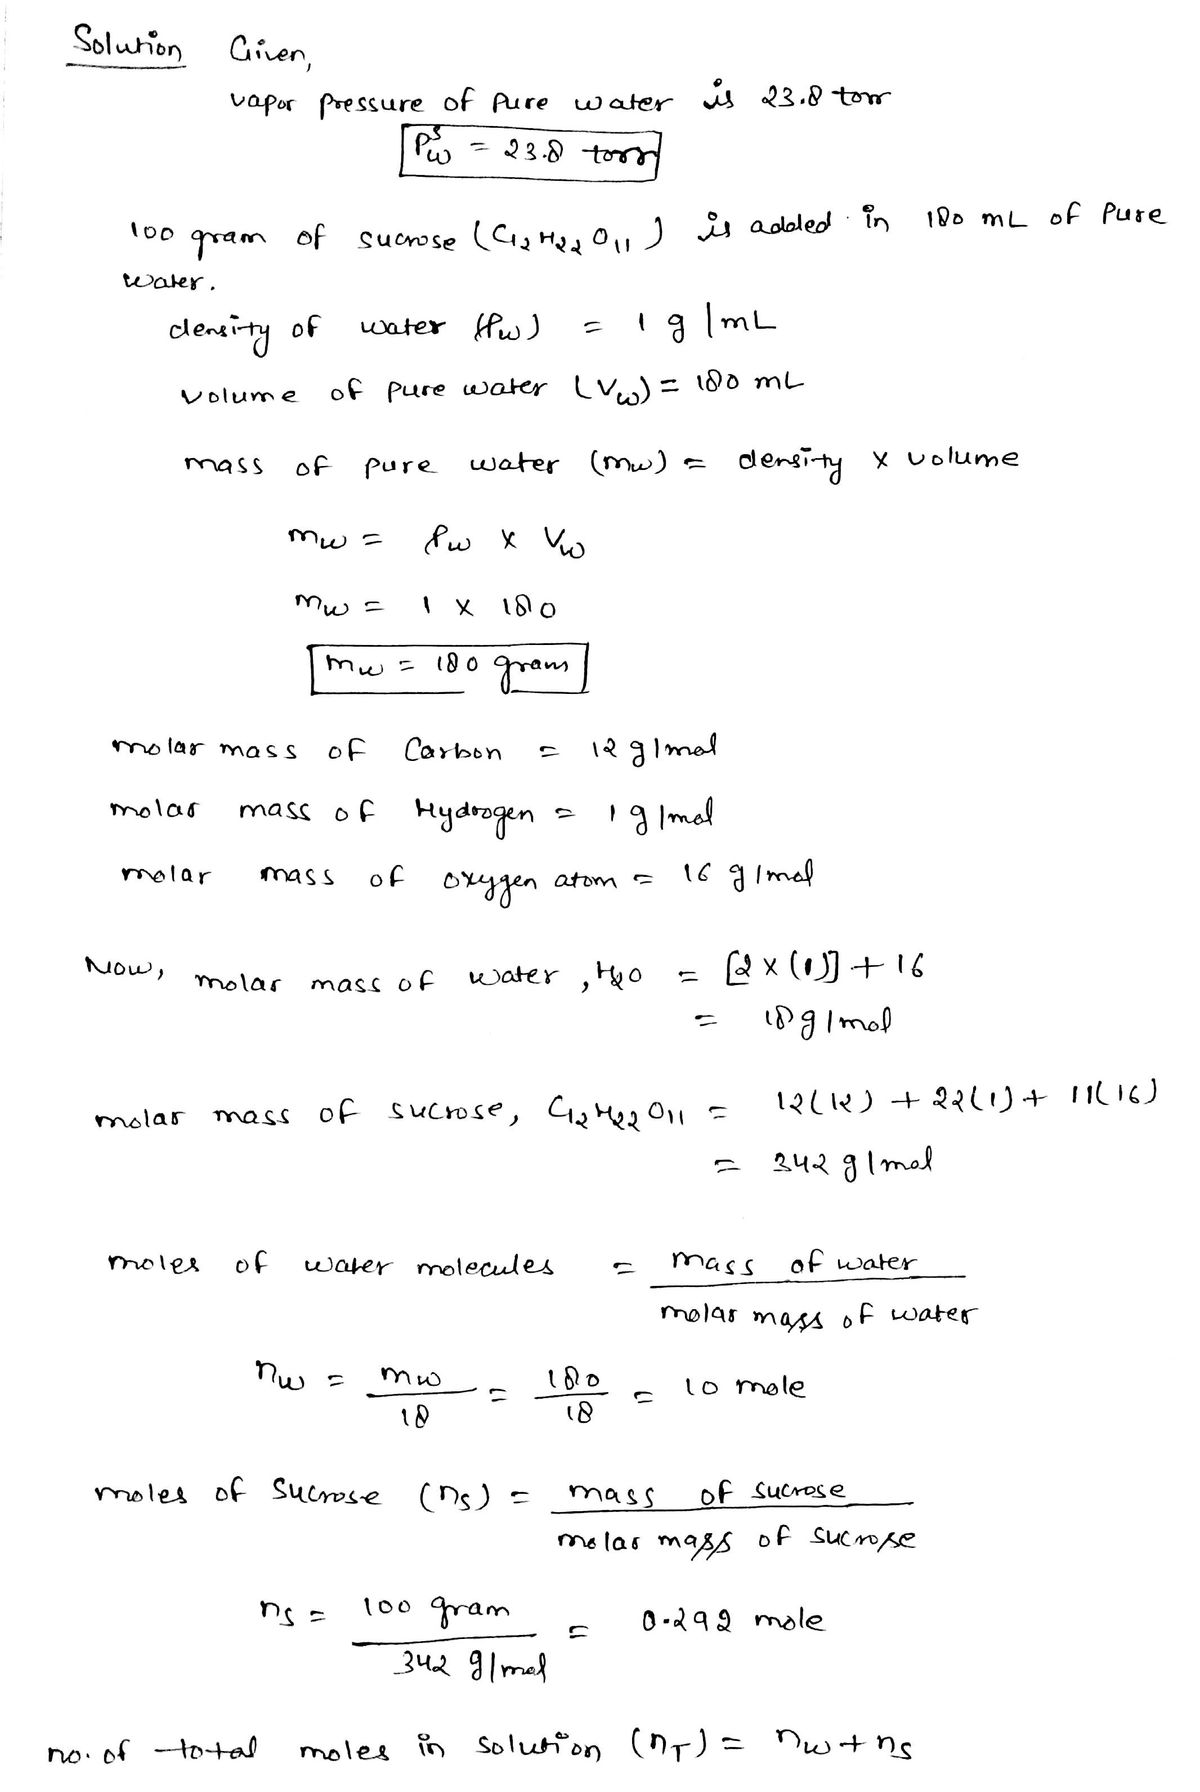 Solution Given,
vapor pressure of pure water is 23.8 torr
P^s_w = 23.8 torr
100 gram of sucrose (C12H22O11) is added in 180 mL of Pure
water.
density of water (ρw) = 1 g/mL
volume of pure water (Vw) = 180 mL
mass of pure water (mw) = density x volume
mw = ρw x Vw
mw = 1 x 180
mw = 180 gram
molar mass of Carbon = 12 g/mol
molar mass of Hydrogen = 1 g/mol
molar mass of oxygen atom = 16 g/mol
Now, molar mass of water, H2O = [2 x (1)] + 16
= 18 g/mol
molar mass of sucrose, C12H22O11 = 12(12) + 22(1) + 11(16)
= 342 g/mol
moles of water molecules = mass of water / molar mass of water
nw = mw/18 = 180/18 = 10 mole
moles of Sucrose (ns) = mass of sucrose / molar mass of sucrose
ns = 100 gram / 342 g/mol = 0.292 mole
no. of total moles in solution (nT) = nw + ns